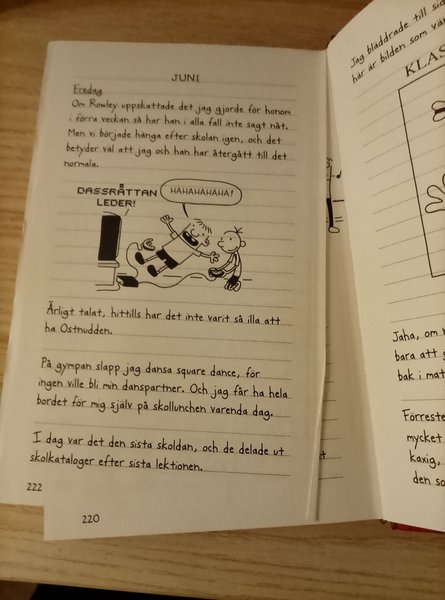 JUNI
Fredag
Om Rowley uppskattade det jag gjorde för honom
i förra veckan så har han i alla fall inte sagt nåt.
Men vi började hänga efter skolan igen, och det
betyder väl att jag och han har återgått till det
normala.
DASSRÅTTAN
LEDER!
HAHAHAHAHA!
Ärligt talat, hittills har det inte varit så illa att
ha Ostnudden.
På gympan slapp jag dansa square dance, för
ingen ville bli min danspartner. Och jag får ha hela
bordet för mig själv på skollunchen varenda dag.
I dag var det den sista skoldan, och de delade ut
skolkataloger efter sista lektionen.
222
220
Jag bläddrade till
här är bilden som
KLAS
Jaha, om
bara att
bak i mat
Förreste
mycket
kaxig,
den so